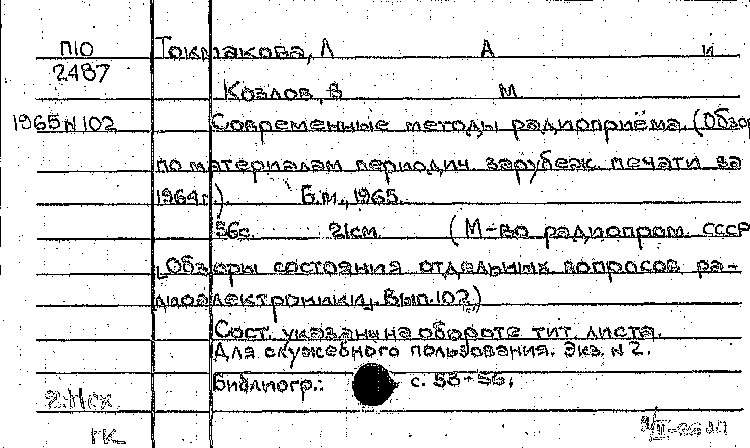 П10 Токмакова, Л А и
2487
Козлов, В М
1965 N 102 Современные методы радиоприёма. (Обзор
по материалам периодич. зарубеж. печати за
1964г.). Б.м., 1965.
56с. 21см (М-во радиопром. СССР
[Обзоры состояния отдельных вопросов ра-
диоэлектроники]. Вып. 102)
Сост. указаны на обороте тит. листа.
Для служебного пользования. Экз. N 2.
Библиогр.: с. 53-56.
ГК